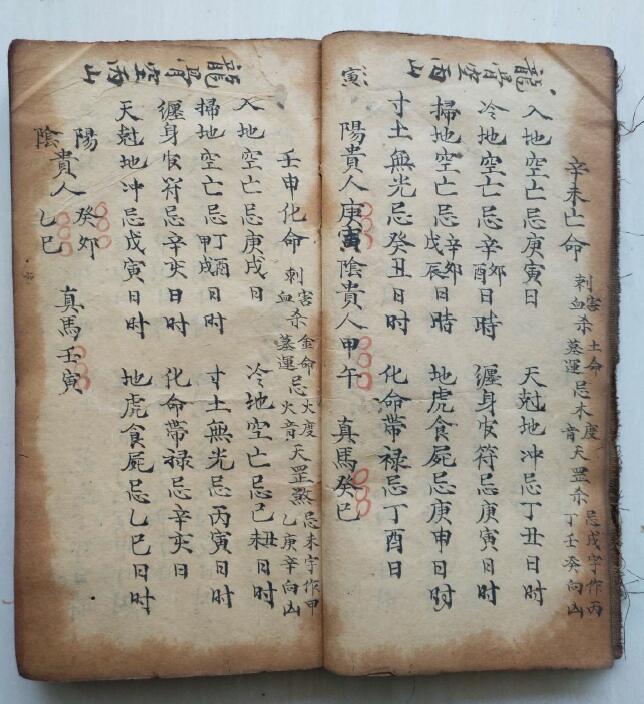 龍骨空丙山
寅
辛未亡命
刺害
血杀土命
墓運忌木度
音天罡杀忌戌字作丙
丁壬癸向凶
入地空亡忌庚寅日
天尅地冲忌丁丑日时
冷地空亡忌辛卯辛酉日時
纏身官符忌庚寅日时
掃地空亡忌辛卯戊辰日時
地虎食屍忌庚申日时
寸土無光忌癸丑日时
化命帶禄忌丁酉日
陽貴人庚寅陰貴人甲午
真馬癸巳
龍骨空丙山
壬申化命
刺害
血杀金命
墓運忌火度
火音天罡煞忌未字作甲
乙庚辛向凶
入地空亡忌庚戌日
冷地空亡忌己丑未日时
掃地空亡忌丁酉甲戌日时
寸土無光忌丙寅日时
纏身官符忌辛亥日时
化命帶禄忌辛亥日
天尅地冲忌戊寅日时
地虎食屍忌乙巳日时
陽貴人癸卯
陰貴人乙巳
真馬壬寅